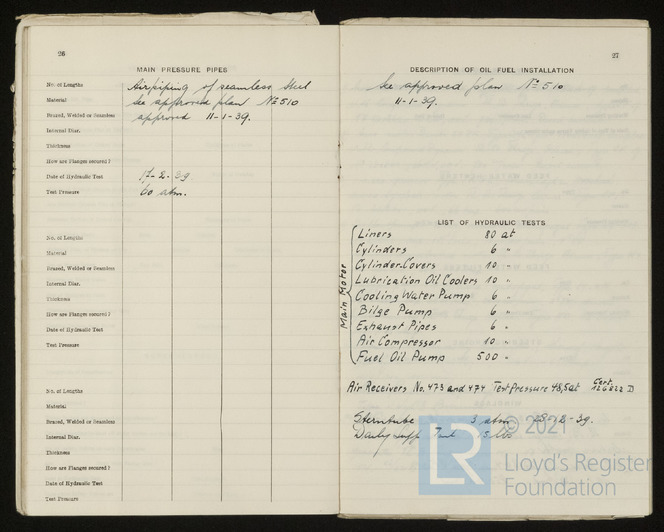 26
MAIN PRESSURE PIPES
No. of Lengths
Air piping of seamless steel
Material
See approved plan No 510
Brazed, Welded or Seamless
approved 11-1-39.
Internal Diar.
Thickness
How are Flanges secured?
Date of Hydraulic Test
17-2-39
Test Pressure
60 atm.
No. of Lengths
Material
Brazed, Welded or Seamless
Internal Diar.
Thickness
How are Flanges secured?
Date of Hydraulic Test
Test Pressure
No. of Lengths
Material
Brazed, Welded or Seamless
Internal Diar.
Thickness
How are Flanges secured?
Date of Hydraulic Test
Test Pressure
27
DESCRIPTION OF OIL FUEL INSTALLATION
See approved plan No 510
11-1-39.
LIST OF HYDRAULIC TESTS
Main Motor
Liners 80 at
Cylinders 6 "
Cylinder Covers 10 "
Lubrication Oil Coolers 10 "
Cooling Water Pump 6 "
Bilge Pump 6 "
Exhaust Pipes 6 "
Air Compressor 10 "
Fuel Oil Pump 500 "
Air Receivers No. 473 and 474 Test Pressure 48,5 at Cert. 126822 D
Sterntube 3 atm -2-39.
Daily Test 15 lbs
© 2021
LR
Lloyd's Register
Foundation